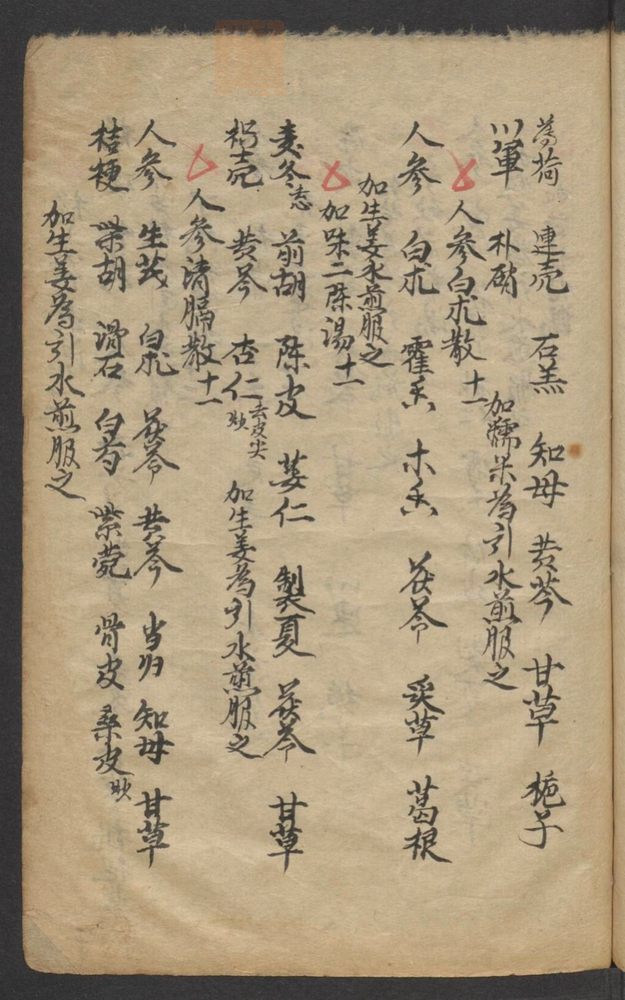 薄荷 連壳 石羔 知母 黄芩 甘草 梔子
川軍 朴硝 加糯米為引水煎服之
人參白朮散 十一
人參 白朮 霍香 木香 茯苓 炙草 葛根
加生姜水煎服之
加味二陈湯 十一
麦冬去心 前胡 陈皮 蒌仁 製夏 茯苓 甘草
枳壳 黄芩 杏仁去皮尖 加生姜為引水煎服之
人參清膈散 十一
人參 生茋 白朮 茯苓 黄芩 当归 知母 甘草
桔梗 柴胡 滑石 白芍 紫菀 骨皮 桑皮
加生姜為引水煎服之